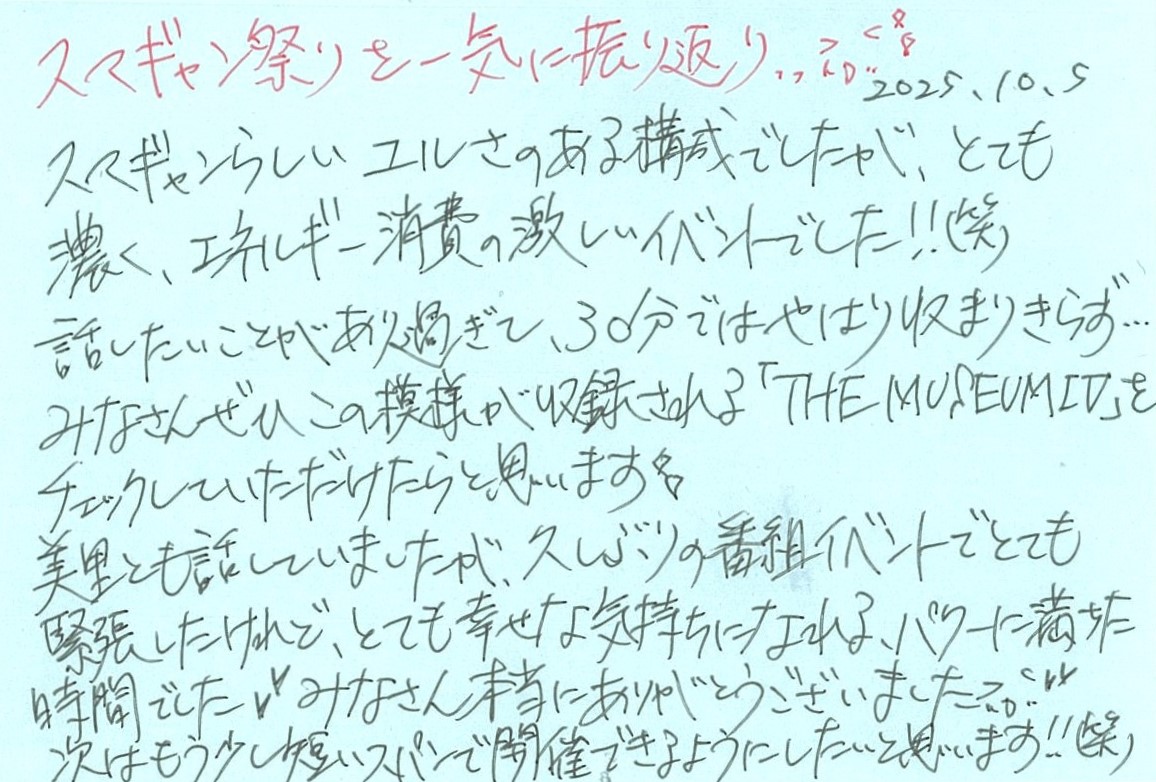 スマギャン祭りを一気に振り返り
2025.10.5
スマギャンらしいユルさのある構成でしたが、とても
濃く、エネルギー消費の激しいイベントでした!!(笑)
話したいことがあり過ぎて、30分ではやはり収まりきらず…
みなさんぜひこの模様が収録される「THE MUSEUM IV」を
チェックしていただけたらと思います
美里とも話していましたが、久しぶりの番組イベントでとても
緊張したけれど、とても幸せな気持ちになれる、パワーに満ちた
時間でした みなさん本当にありがとうございました
次はもう少し短いスパンで開催できるようにしたいと思います!!(笑)